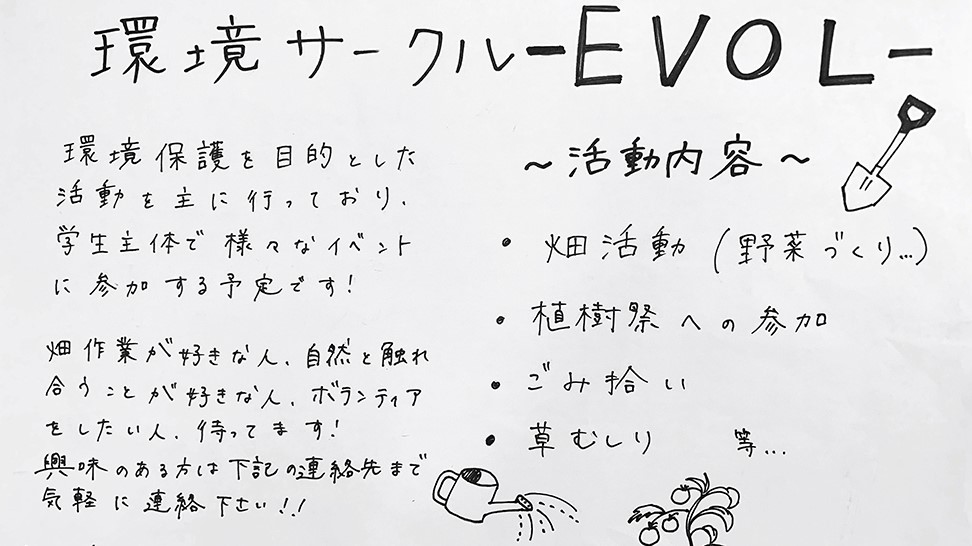 環境サークルーEVOLー
環境保護を目的とした
活動を主に行っており、
学生主体で様々なイベント
に参加する予定です!
畑作業が好きな人、自然と触れ
合うことが好きな人、ボランティア
をしたい人、待ってます!
興味のある方は下記の連絡先まで
気軽に連絡下さい!!
~活動内容~
・畑活動(野菜づくり...)
・植樹祭への参加
・ごみ拾い
・草むしり 等...